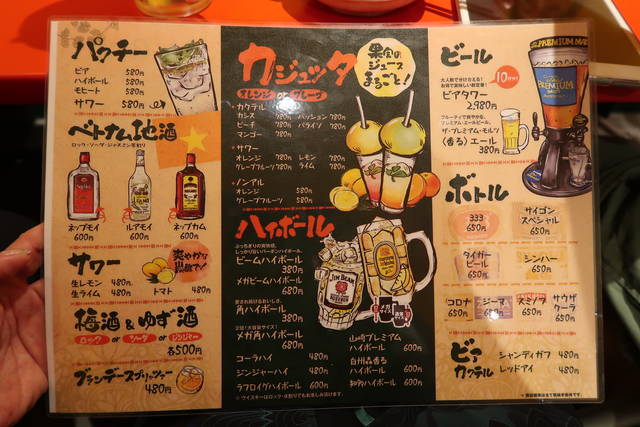 パクチー
ビア 580円
ハイボール 580円
モヒート 580円
サワー 580円
ベトナム地酒
ロック・ソーダ・ジャスミン茶割り
ネップモイ
600円
ルアモイ
600円
ネップカム
600円
サワー
爽やかな
生レモン 480円
生ライム 480円
トマト 480円
梅酒&ゆず酒
ロック or ソーダ or ジンジャー
各500円
ブランデースプリッツァー
480円
カジュッタ
果実の
ジュース
まるごと!
オレンジ or グレープ
・カクテル
カシス 780円
パッション 780円
ピーチ 780円
パライソ 780円
マンゴー 780円
・サワー
オレンジ 780円
レモン 780円
グレープフルーツ 780円
ライム 780円
・ノンアル
オレンジ 580円
グレープフルーツ 580円
ハイボール
ビームハイボール
380円
メガビームハイボール
680円
角ハイボール
380円
メガ角ハイボール
680円
コーラハイ 480円
ジンジャーハイ 480円
ラフロイグハイボール 600円
山崎プレミアム
ハイボール 600円
白州森香る
ハイボール 600円
知多ハイボール 600円
JIM BEAM
※ウイスキーはロック・水割りでもお楽しみ頂けます。
ビール
10分!!
ビアタワー
2,980円
ザ・プレミアム・モルツ
〈香る〉エール
380円
PREMIUM
ボトル
333
650円
サイゴン
スペシャル
650円
タイガー
ビール
650円
シンハー
650円
コロナ
650円
ジーマ
650円
スミノフ
650円
サウザ
クーラ
650円
ビアカクテル
シャンディガフ 480円
レッドアイ 480円